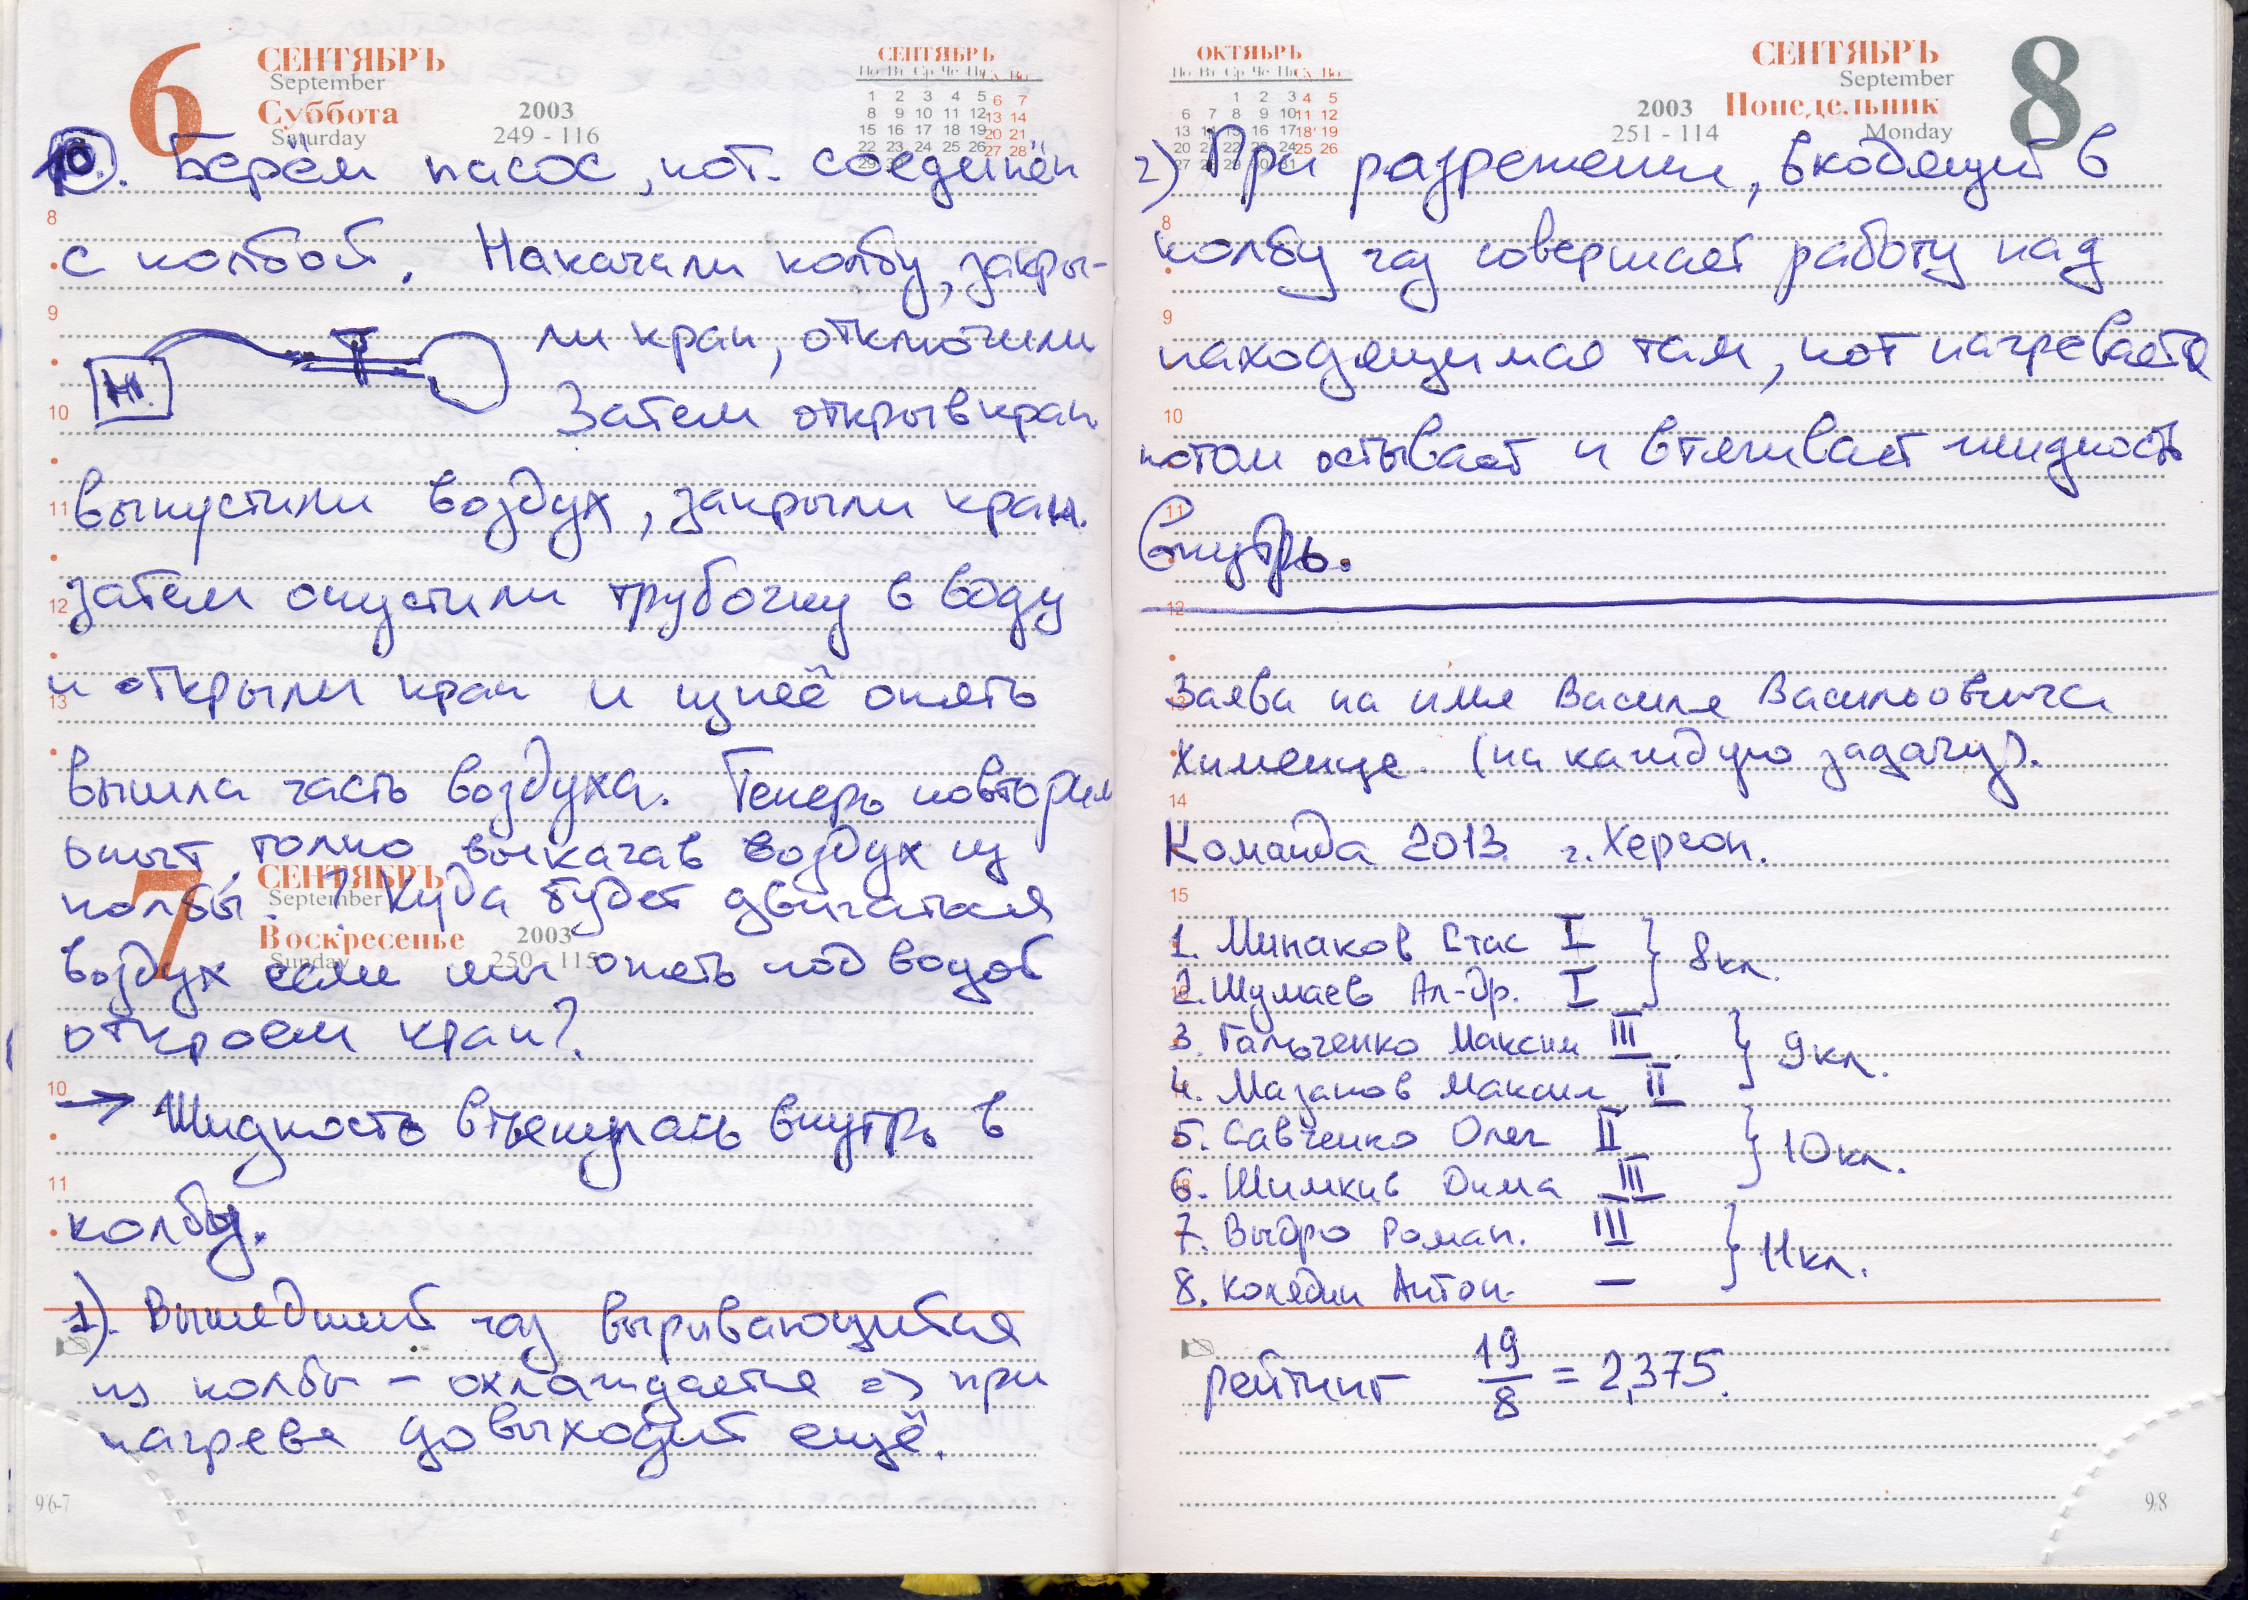 6 СЕНТЯБРЬ
September
Суббота
Saturday
2003
249 - 116
СЕНТЯБРЬ
По Вт Ср Че Пя Су Во
1 2 3 4 5 6 7
8 9 10 11 12 13 14
15 16 17 18 19 20 21
22 23 24 25 26 27 28
29 30
10. Берём насос, кот. соединён
8
с колбой. Накачали колбу, закры-
9
ли кран, отключили
Н.
10
Затем открыв кран
11
выпустили воздух, закрыли кран.
12
затем опустили трубочку в воду
13
и открыли кран и из неё опять
вышла часть воздуха. Теперь повторим
опыт только выкачав воздух из
7 СЕНТЯБРЬ
September
колбы. ? Куда будет двигаться
Воскресенье
Sunday
2003
250 - 115
воздух если мы опять под водой
откроем кран?
10
→ Жидкость втянулась внутрь в
11
колбу.
1). Вышедший газ вырывающийся
из колбы – охлаждается => при
нагреве довыходит ещё.
96-7
ОКТЯБРЬ
По Вт Ср Че Пя Су Во
1 2 3 4 5
6 7 8 9 10 11 12
13 14 15 16 17 18 19
20 21 22 23 24 25 26
27 28 29 30 31
2003
251 - 114
СЕНТЯБРЬ
September
Понедельник
Monday
8
2) При разрежении, входящий в
8
колбу газ совершает работу над
9
находящимся там, кот нагревается
10
потом остывает и втягивает жидкость
11
внутрь.
12
13
Заява на имя Василя Васильовича
Хименце. (на каждую задачу).
14
Команда 2013 г. Херсон.
15
1. Минаков Стас I } 8кл.
2. Шумаев Ал-др. I
3. Гальченко Максим III } 9кл.
4. Мазанов Максим II
5. Савченко Олег II } 10кл.
18
6. Шимкив Дима III
7. Выдро Роман. III } 11кл.
8. Колядин Антон. —
рейтинг 19/8 = 2,375.
98